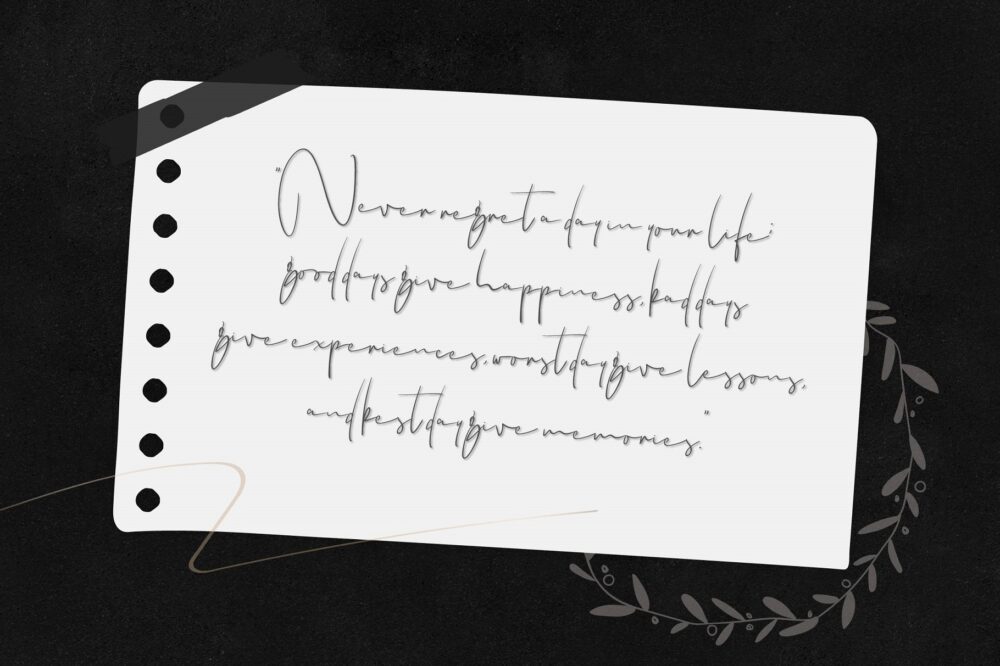 "Never regret a day in your life;
good days give happiness, bad days
give experiences, worst day give lessons,
and best day give memories."